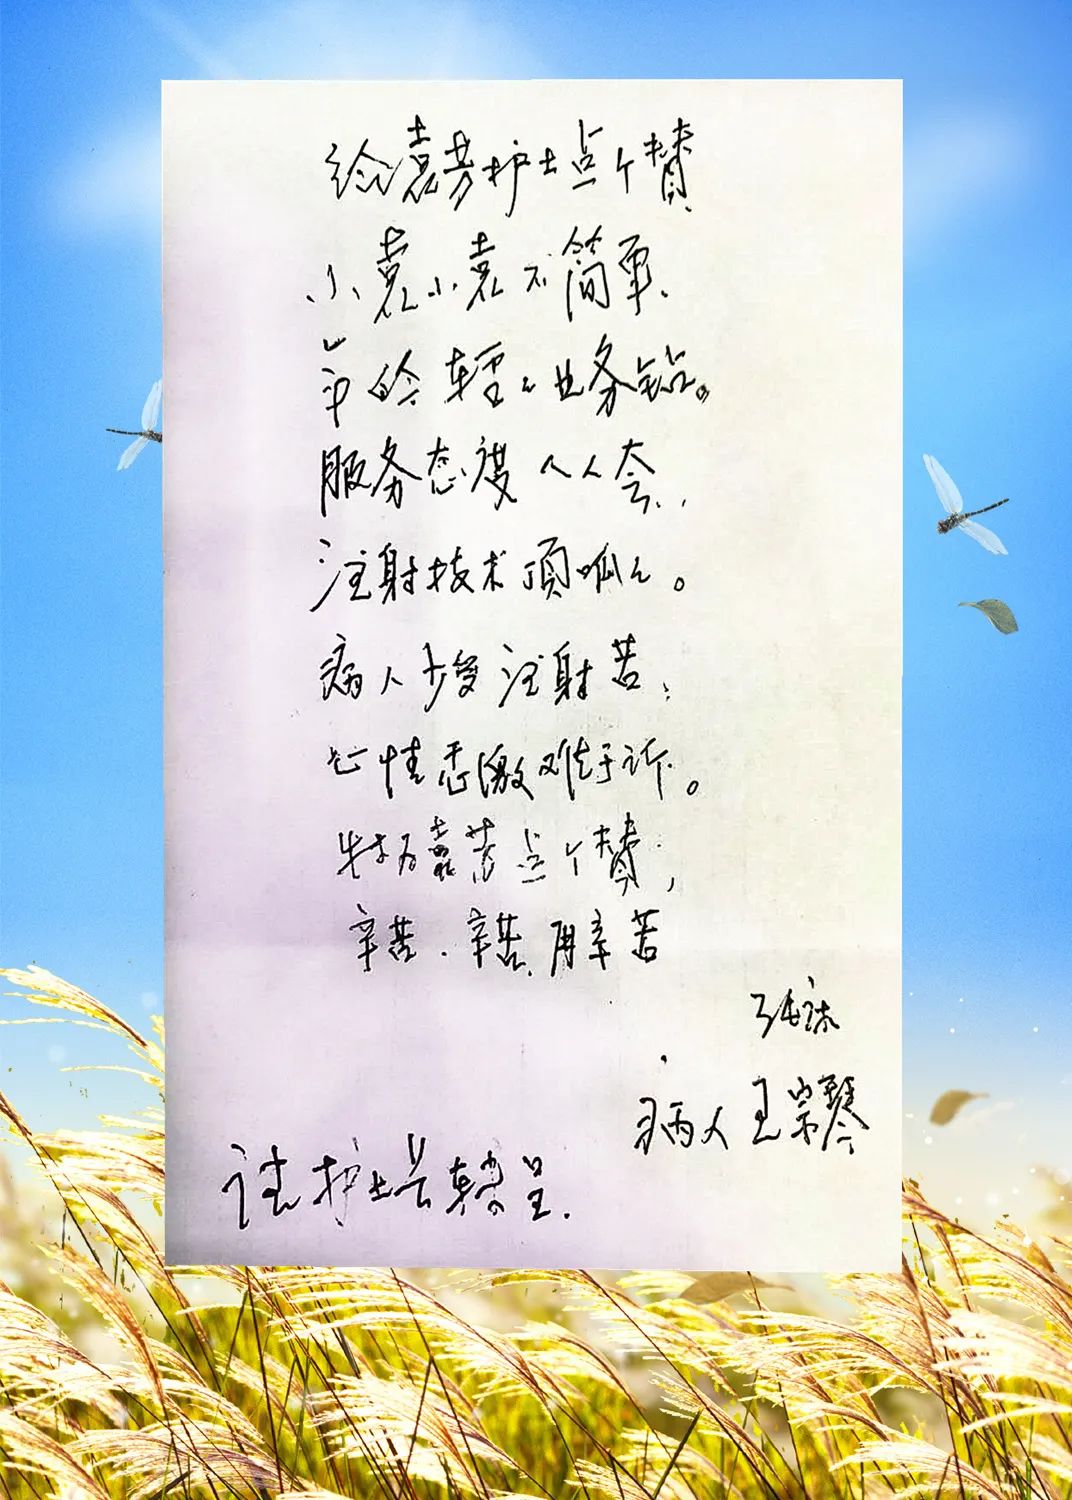 给袁芳护士点个赞
小袁小袁不简单.
年龄轻轻业务钻。
服务态度人人夸..
注射技术顶呱呱。
病人少受注射苦;
心情感激难于诉。
特为袁芳点个赞,
辛苦.辛苦.再辛苦
病人王宗琴
请护士长转呈.